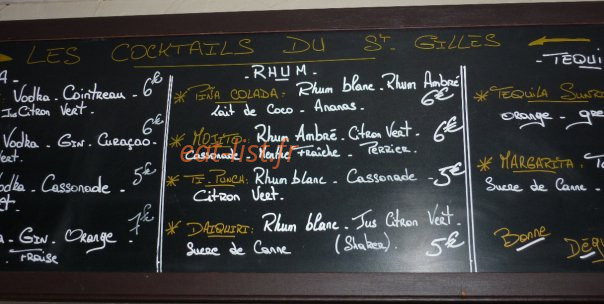 LES COCKTAILS DU St GILLES
Vodka. Cointreau - 6€
Jus Citron Vert.
6€
Vodka - Gin. Curaçao.
Vert
Vodka - Cassonade - 5€
7€
Gin. Orange -
Fraise
- RHUM -
* PIÑA COLADA: Rhum blanc. Rhum Ambré
Lait de Coco - Ananas. 6€
* MOJITO: Rhum Ambré. Citron Vert. 6€
Cassonade Menthe fraîche. PERRIER.
* TI-PUNCH: Rhum blanc. Cassonade - 5€
Citron Vert.
* DAIQUIRI: Rhum blanc. Jus Citron Vert.
Sucre de Canne (Shaker). 5€
- TEQUI
* TEQUILA SUNRI
Orange - gre
* MARGARITA:
Sucre de Canne -
Bonne
Dég
eat-list.fr